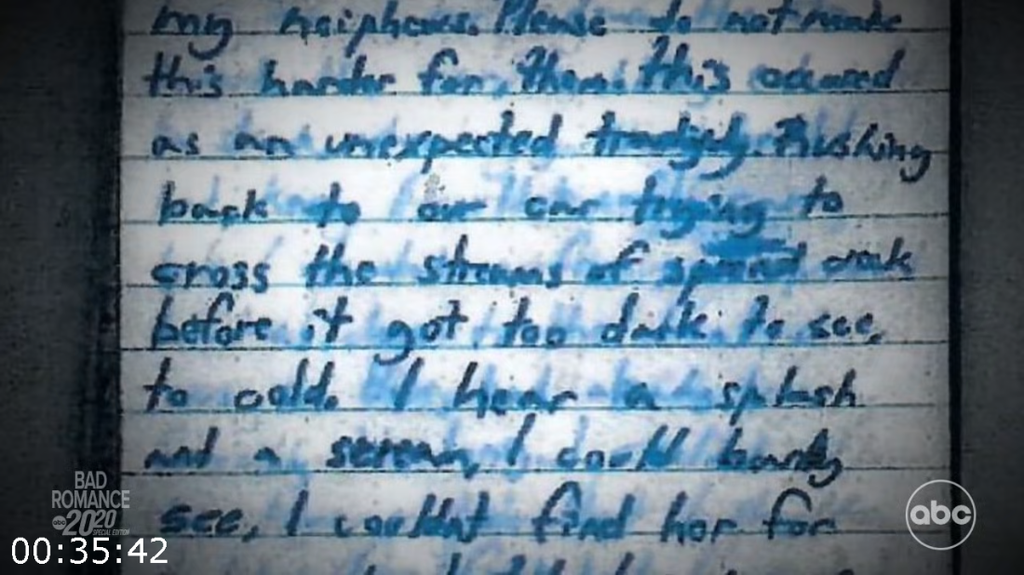 my neiphews. Please do not make
this harder for them this occured
as an unexpected tradgidy. Rushing
back to our car trying to
cross the streams of spread creek
before it got too dark to see,
to cold. I hear a splash
and a scream, I could barely
see, I couldnt find her for
BAD
ROMANCE
abc 2020
SPECIAL EDITION
abc
00:35:42